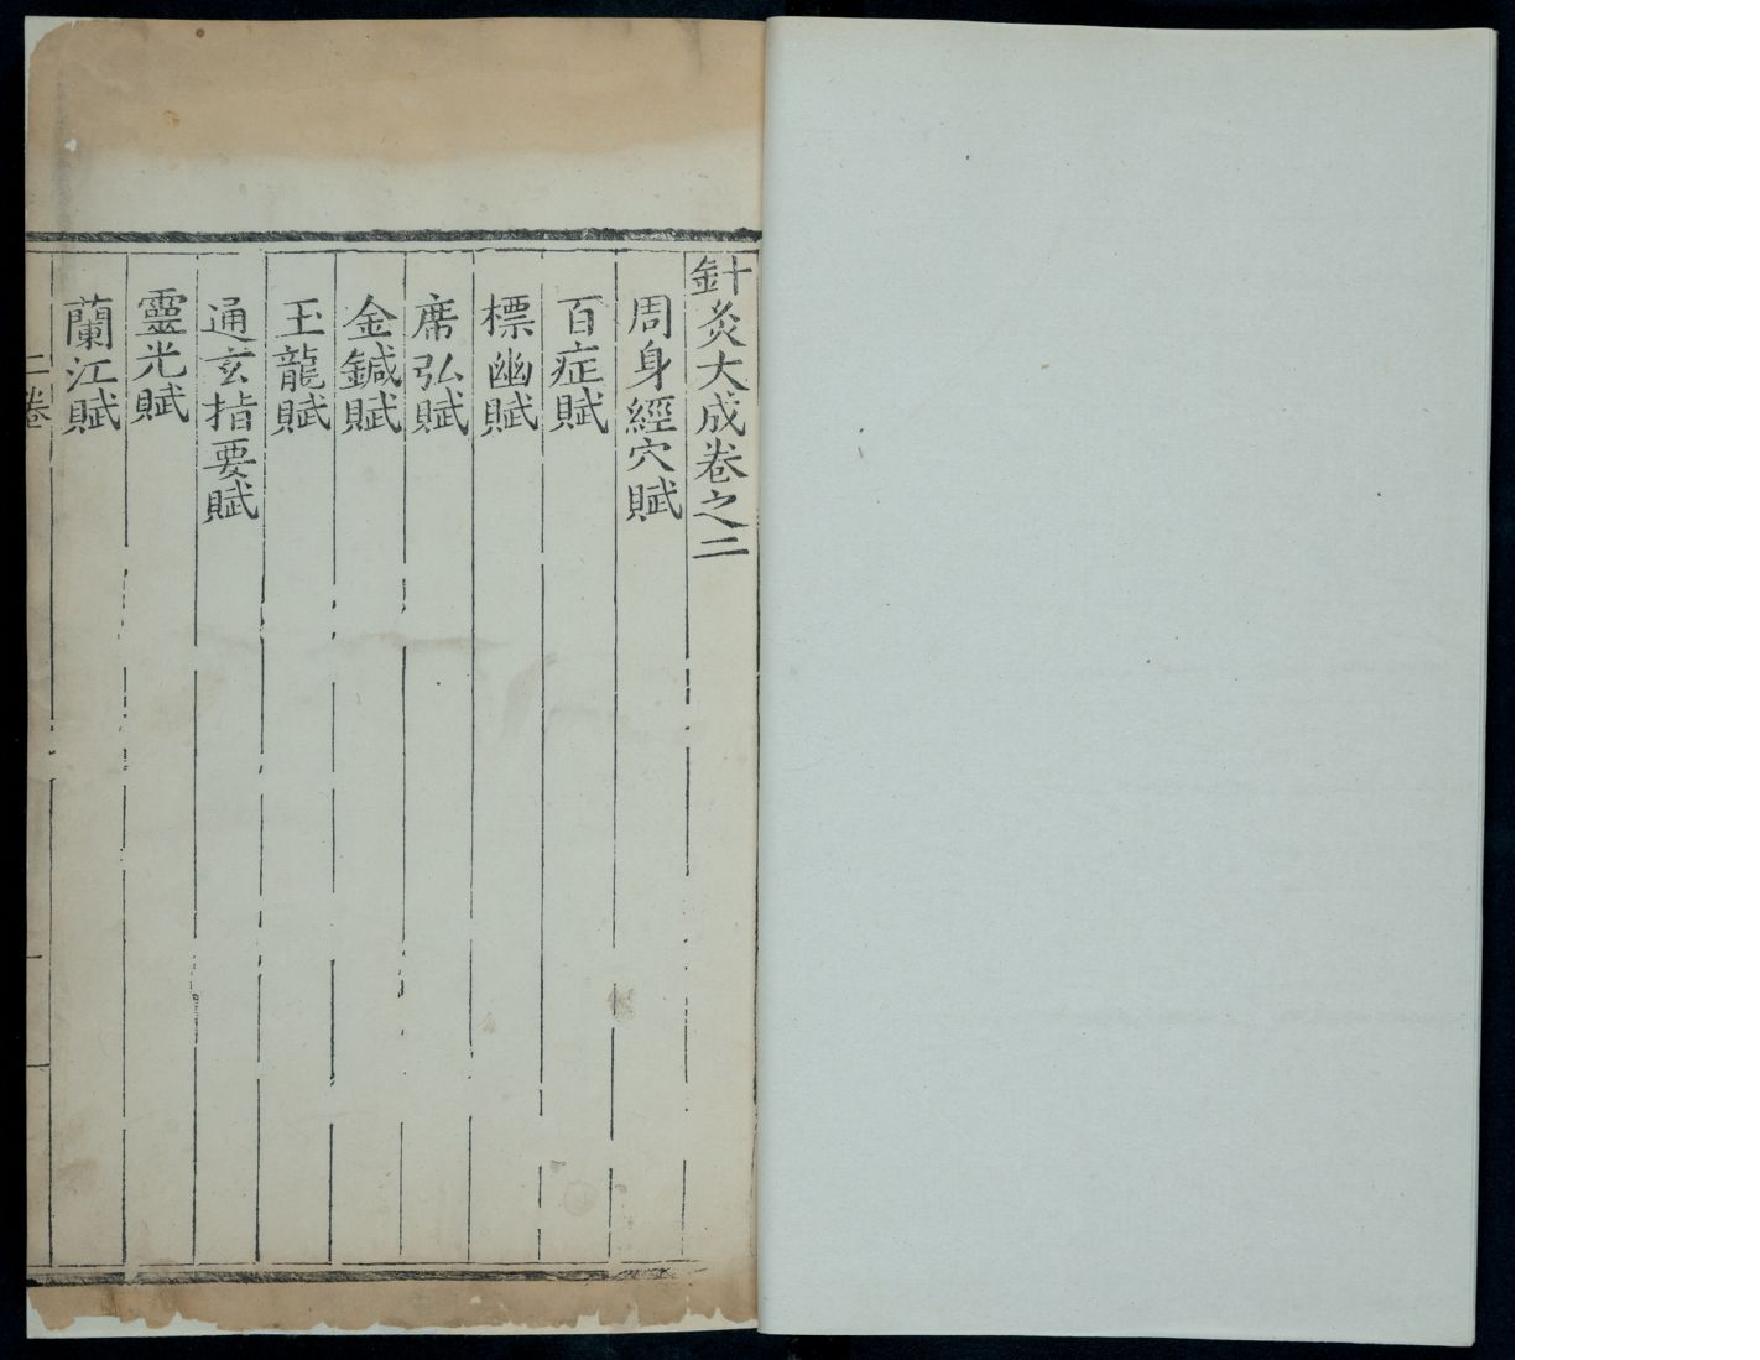 針灸大成卷之二
周身經穴賦
百症賦
標幽賦
席弘賦
金鍼賦
玉龍賦
通玄指要賦
靈光賦
蘭江賦
二卷